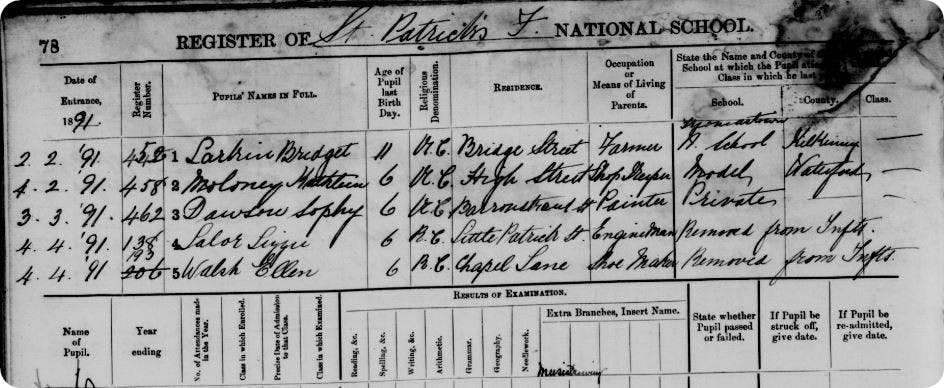 78 REGISTER OF St. Patrick's F. NATIONAL SCHOOL.
Date of Entrance, 1891. Register Number. PUPILS' NAMES IN FULL. Age of Pupil last Birth Day. Religious Denomination. RESIDENCE. Occupation or Means of Living of Parents. State the Name and County of School at which the Pupil Class in which he last
School. County. Class.
2. 2. '91 452 1 Larkin Bridget 11 R.C. Bridge Street Farmer N. School Kilkenny —
4. 2. '91. 458 2 Moloney Kathleen 6 R.C. High Street Shop Keeper Model, Waterford, —
3. 3. '91. 462 3 Dawson Sophy 6 R.C. Barronstrand St Painter Private —
4. 4. '91. 138 4 Lalor Lizzie 6 R.C. Little Patrick St. Engine Man Removed from Infts.
193
4. 4. '91 206 5 Walsh Ellen 6 R.C. Chapel Lane Shoe Maker Removed from Infts.
Name of Pupil. Year ending No. of Attendances made in the Year. Class in which Enrolled. Precise Date of Admission to that Class. Class in which Examined. RESULTS OF EXAMINATION. State whether Pupil passed or failed. If Pupil be struck off, give date. If Pupil be re-admitted, give date.
Reading, &c. Spelling, &c. Writing, &c. Arithmetic. Grammar. Geography. Needlework. Extra Branches, Insert Name.
Music Drawing